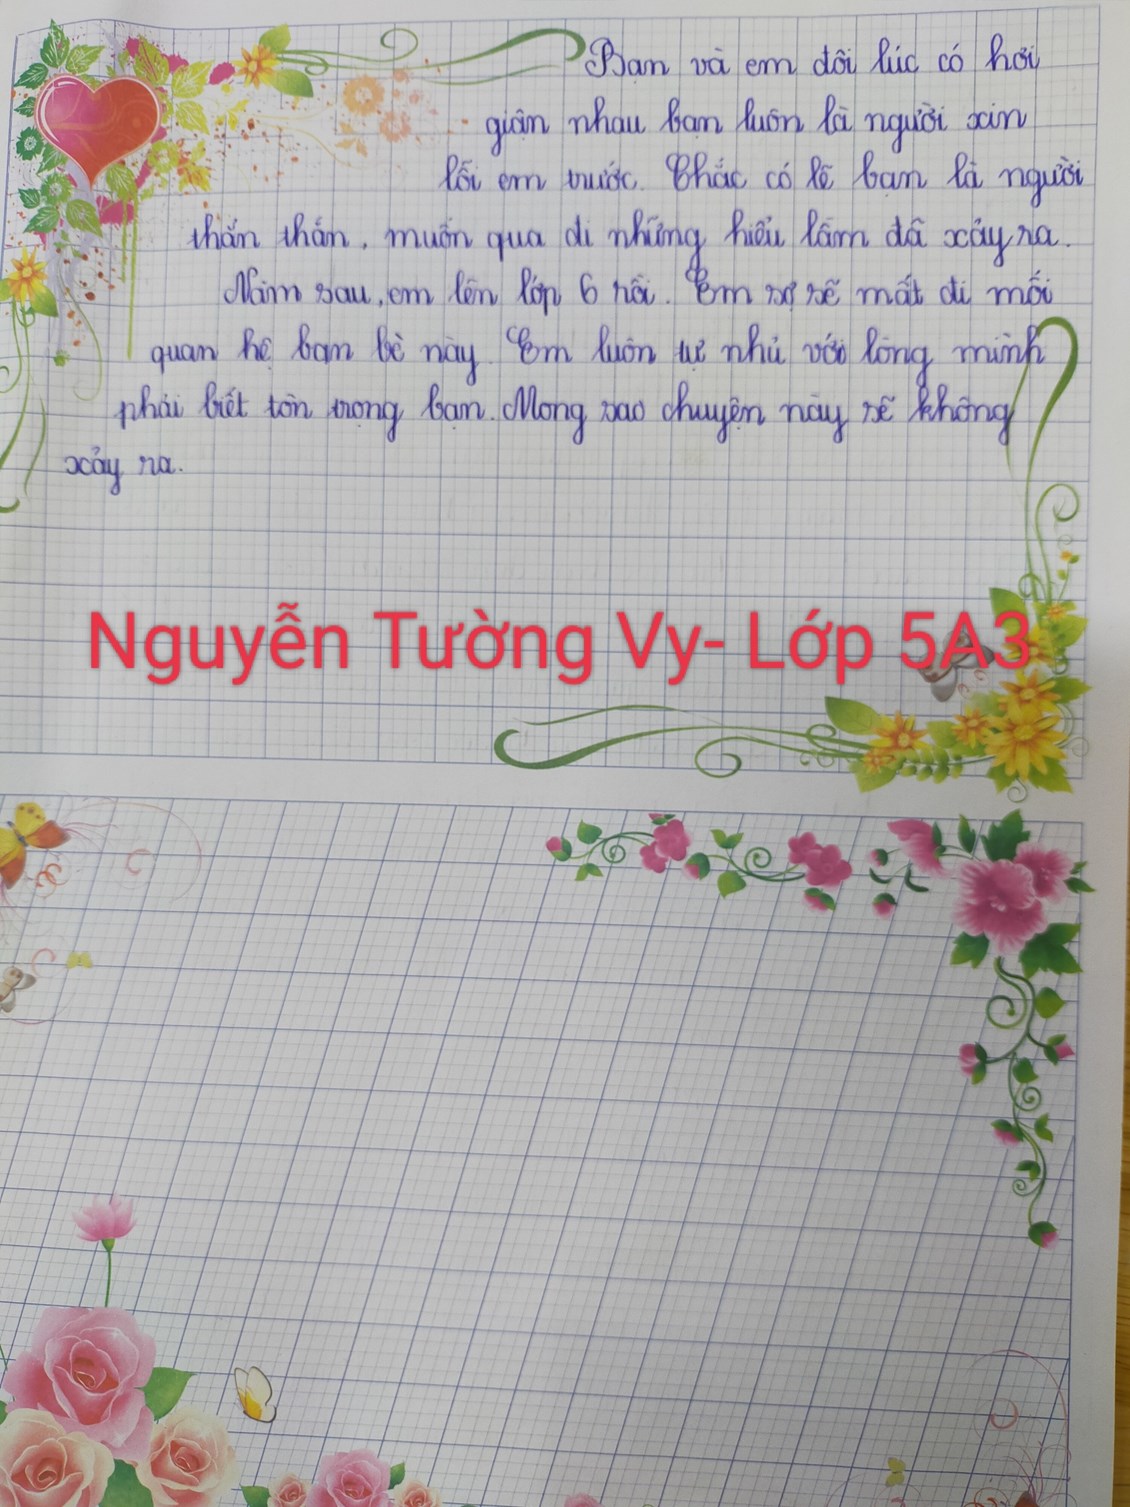 Bạn và em đôi lúc có hơi
giận nhau bạn luôn là người xin
lỗi em trước. Chắc có lẽ bạn là người
thẳn thắn, muốn qua đi những hiểu lầm đã xảy ra.
Năm sau, em lên lớp 6 rồi. Em sợ sẽ mất đi mối
quan hệ bạn bè này. Em luôn tự nhủ với lòng mình
phải biết tôn trọng bạn. Mong sao chuyện này sẽ không
xảy ra.
Nguyễn Tường Vy- Lớp 5A3